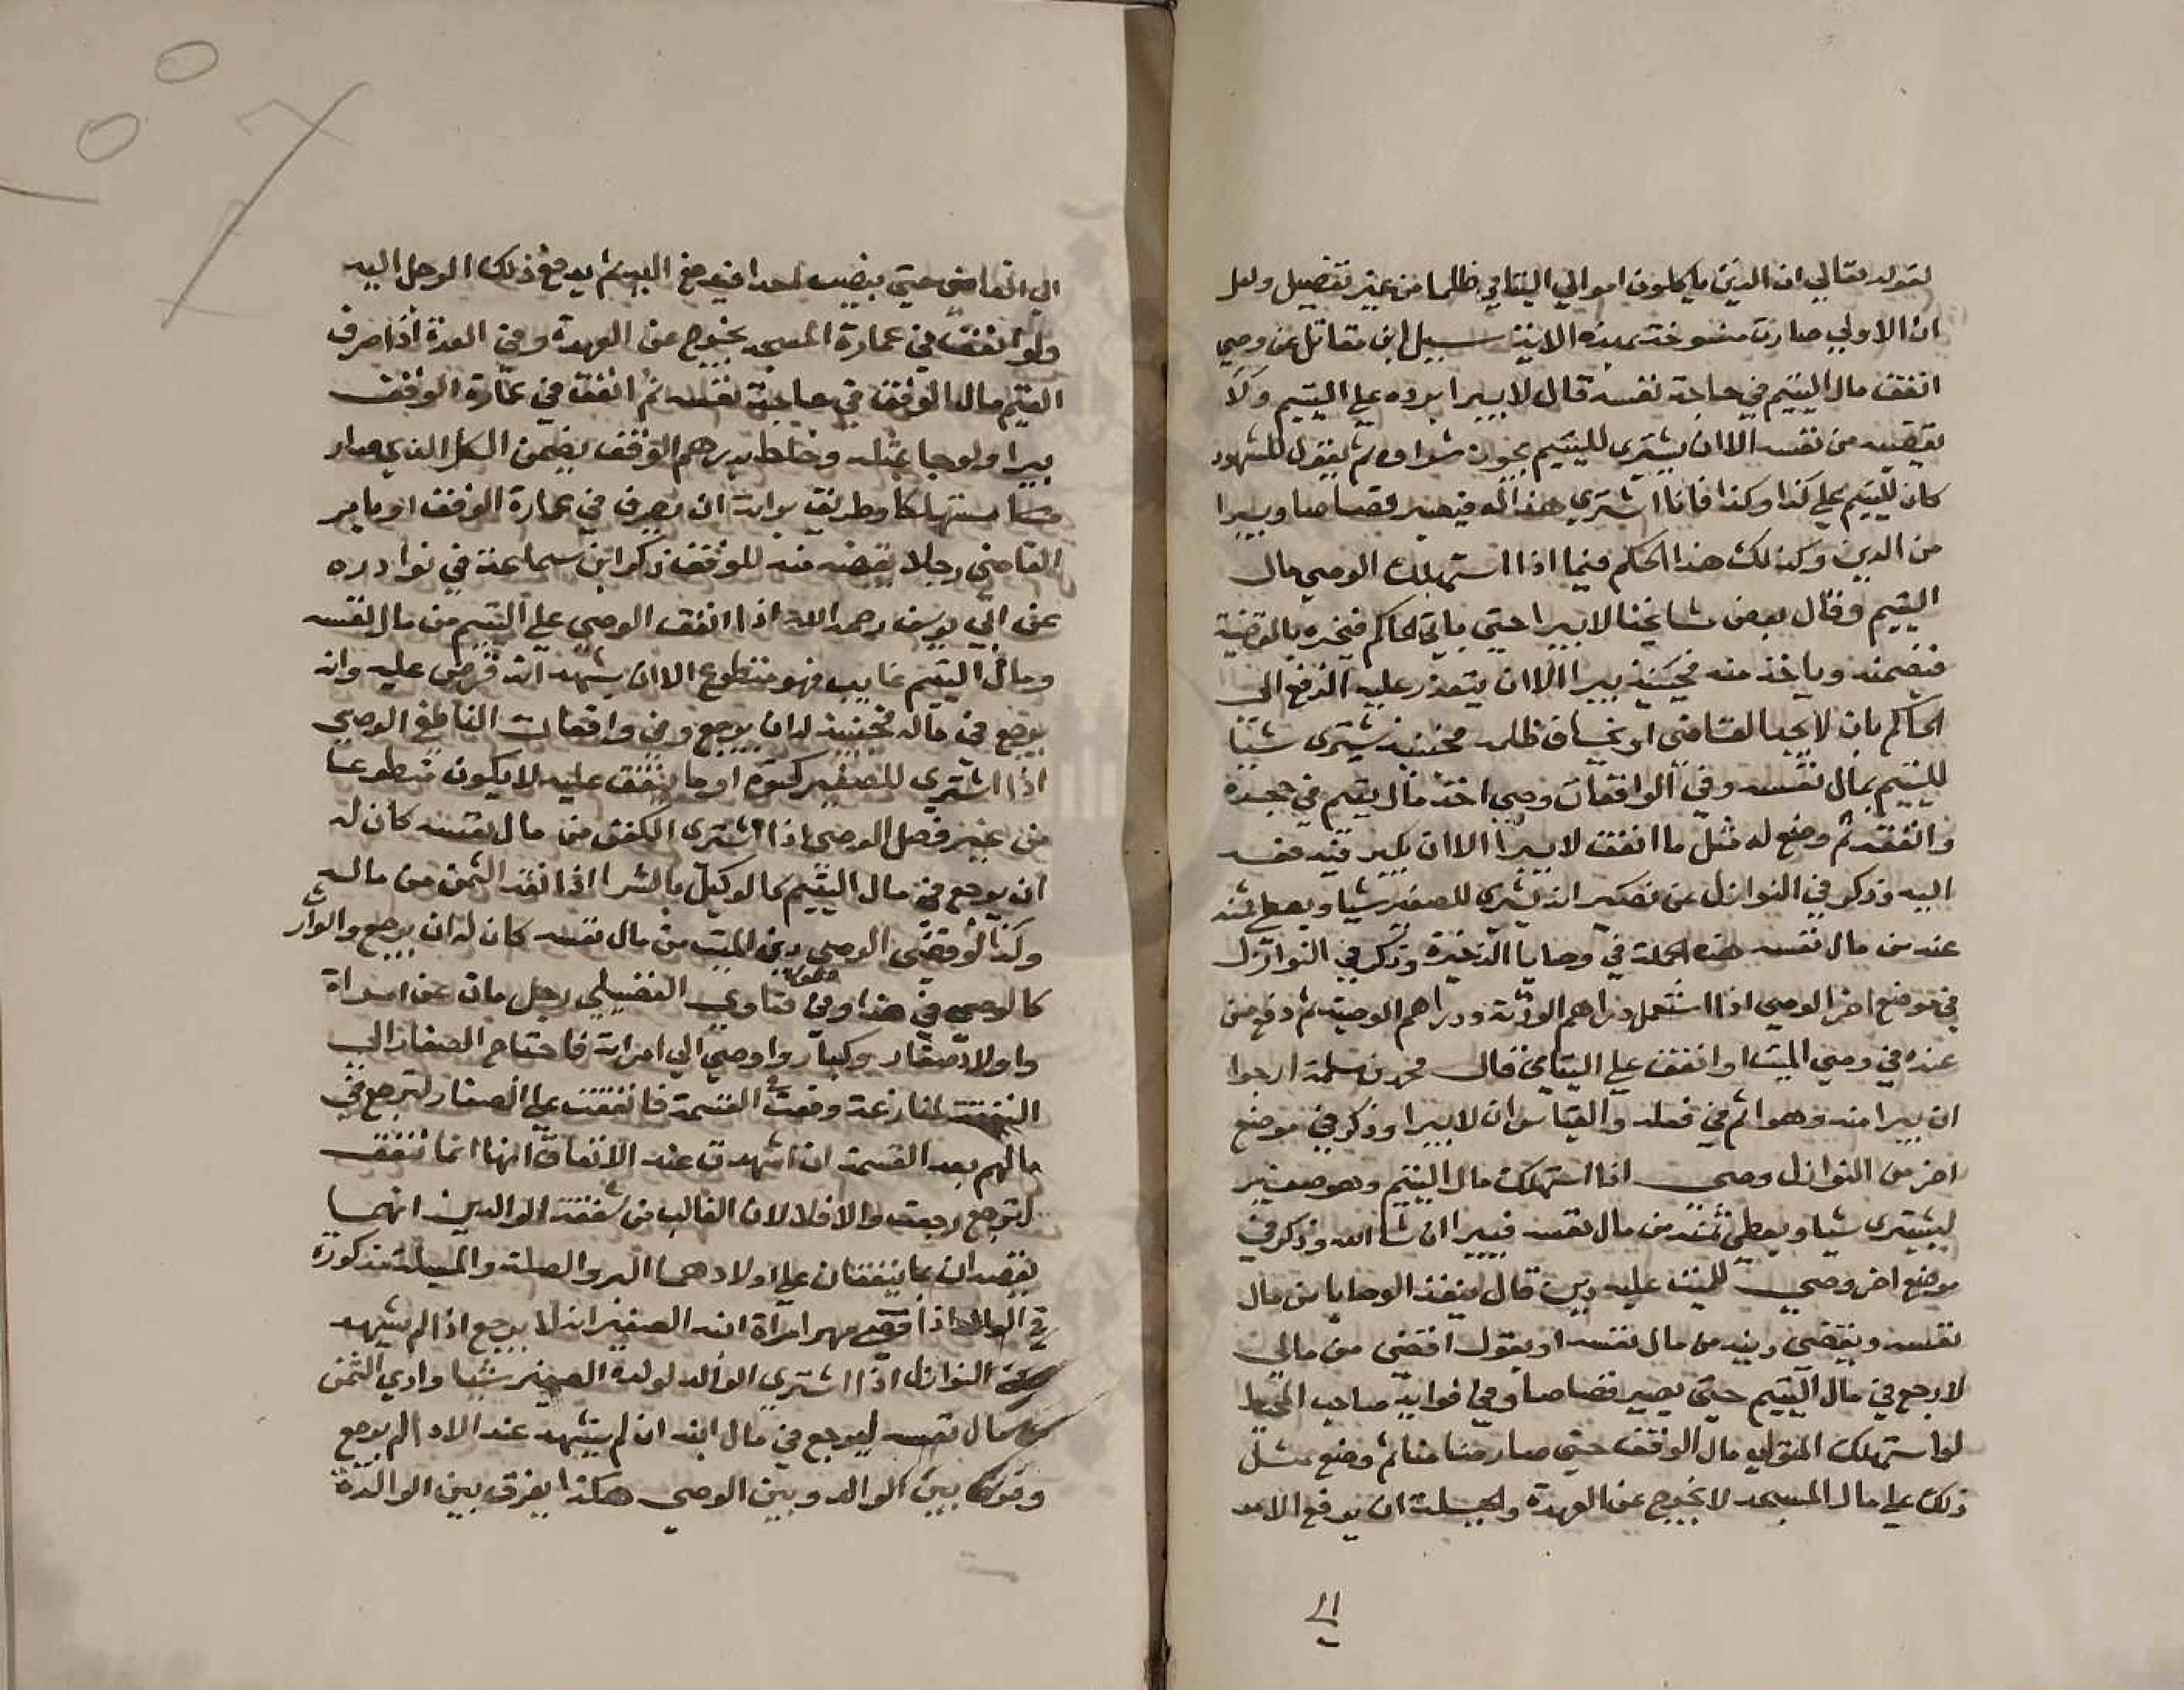 لقوله تعالي ان الذين ياكلون اموالي اليتامي ظلما من غير تفصيل ولعل
ان الاولي صارت منسوخة بهذه الاية سيل ابن مقاتل عن وصي
انفق مال اليتيم في حاجة نفسه قال لا يبرا برده علي اليتيم ولا
يقضيه من نفسه الا ان يشتري لليتيم بجوز شراوه ثم يقول للشهود
كان لليتيم علي كذا وكذا فانا اشتري هذا له فيصير قصاصا ويبرا
من الدين وكذلك هذا الحكم فيما اذا استهلك الوصي مال
اليتيم وقال بعض مشايخنا لا يبرا حتي ياتي الحاكم فيخبره بالقضية
فيضمنه وياخذ منه فحينيذ يبرا الا ان يتعذر عليه الدفع الي
الحاكم بان لا يجد القاضي او يخاف ظلمه فحينيذ يشتري شيئا
لليتيم بمال نفسه وفي الواقعات وصي اخذ مال يتيم في حجره
وانفقه ثم وضع له مثل ما انفق لا يبرا الا ان يكبر فيدفعه
اليه وذكر في النوازل عن نصير انه يشتري للصغير شيا ويعطي ثمنه
عنده من مال نفسه هذه الجملة في وصايا الذخيرة وذكر في النوازل
في موضع اخر الوصي اذا استعمل دراهم الورثة ودراهم الوصية ثم دفع من
عنده في وصي الميت او انفق علي اليتامي قال محمد بن سلمة ارجوا
ان يبرا منه وهو اثم في فعله والقياس ان لا يبرا وذكر في موضع
اخر من النوازل وصي اذا استهلك مال اليتيم وهو صغير
ليشتري شيا ويعطي ثمنه من مال نفسه فيبرا ان شا الله وذكر في
موضع اخر وصي للميت عليه دين قال ينفذ الوصايا من مال
نفسه ويقضي دينه من مال نفسه او يقول اقضي من مالي
لارجع في مال اليتيم حتي يصير قصاصا وفي فوايد صاحب المحيط
لو استهلك المتولي مال الوقف حتي صار ضامنا ثم وضع مثل
ذلك علي مال المسجد لا يخرج عن العهدة والحيلة ان يرفع الامر
الي
الي القاضي حتي ينصب احدا فيدفع اليه ثم يدفع ذلك الرجل اليه
ولو انفقت في عمارة المسجد يخرج عن العهدة وفي العدة اذا صرف
القيم مال الوقف في حاجة نفسه ثم انفق في عمارة الوقف
يبرا ولو جا بمثله وخلط بدرهم الوقف يضمن الكل الذي صار
مستهلكا وطريق براته ان يصرف في عمارة الوقف او يامر
القاضي رجلا يقبضه منه للوقف ذكر ابن سماعة في نوادره
عن ابي يوسف رحمه الله اذا انفق الوصي علي اليتيم من مال نفسه
ومال اليتيم غايب فهو متطوع الا ان يشهد انه قرض عليه وانه
يرجع في ماله فحينيذ له ان يرجع وفي واقعات الناطفي الوصي
اذا اشتري للصغير كسوة او ما ينفق عليه لا يكون متطوعا
من غير فصل الوصي اذا اشتري الكفن من مال نفسه كان له
ان يرجع في مال اليتيم كالوكيل بالشرا اذا نقد الثمن من ماله
وكذا لو قضي الوصي دين الميت من مال نفسه كان له ان يرجع والوارث
كالوصي في هذا وفي فتاوي الفضيلي رجل مات عن امراة
واولاد صغار وكبار واوصي الي امراته فاحتاج الصغار الي
النفقة لمنازعة وقعت في القسمة فانفقت علي الصغار لترجع في
مالهم بعد القسمة ان اشهدت عند الانفاق انها انما تنفق
لترجع رجعت والا فلا لان الغالب من شفقة الوالدين انهما
يقصدان بما ينفقان علي اولادهما البر والصلة والمسيلة مذكورة
في الوالد اذا قضي مهر امراة ابنه الصغير انه لا يرجع اذا لم يشهد
النوازل اذا اشتري الوالد لولده الصغير شيا وادي الثمن
مال نفسه ليرجع في مال ابنه ان لم يشهد عند الادا لم يرجع
وفرق بين الوالد وبين الوصي هكذا يفرق بين الوالدة